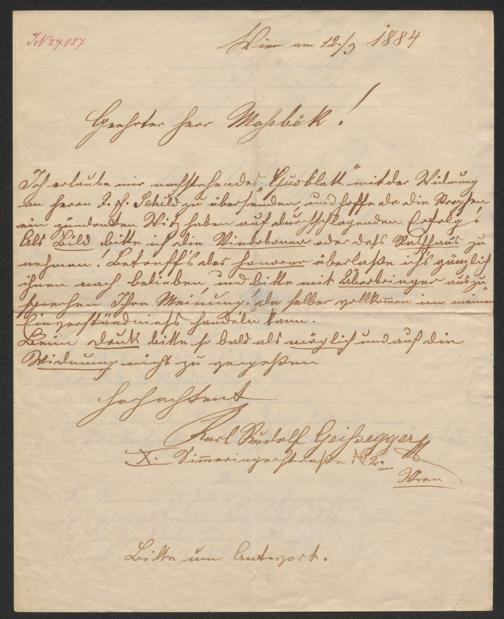 JN 27.827
Wien am 12./9 1884
Geehrter Herr Moßbök!
Ich erlaube mir nachstehendes „Quodlibett" mit der Widnung
an Herrn zu übersenden und hoffe da die Strofen
ein zündenden Witz haben auf durchschlagenden Erfolg!
Als Bild bitte ich die Vindobona oder das Rathhaus zu
nehmen! Betreffs des Honorar überlaße ich's gänzlich
ihnen nach belieben, und bitte mit Überbringer auszu-
sprechen Ihre Meinung, da selber vollkommen im meinem
Einverständniß handeln kann.
Beim Druck bitte so bald als möglich und auf die
Widnung nicht zu vergeßen
Hochachtend
Karl Rudolf Geißegger
X. Simmeringerstraße No
Wien
Bitte um Antwort.